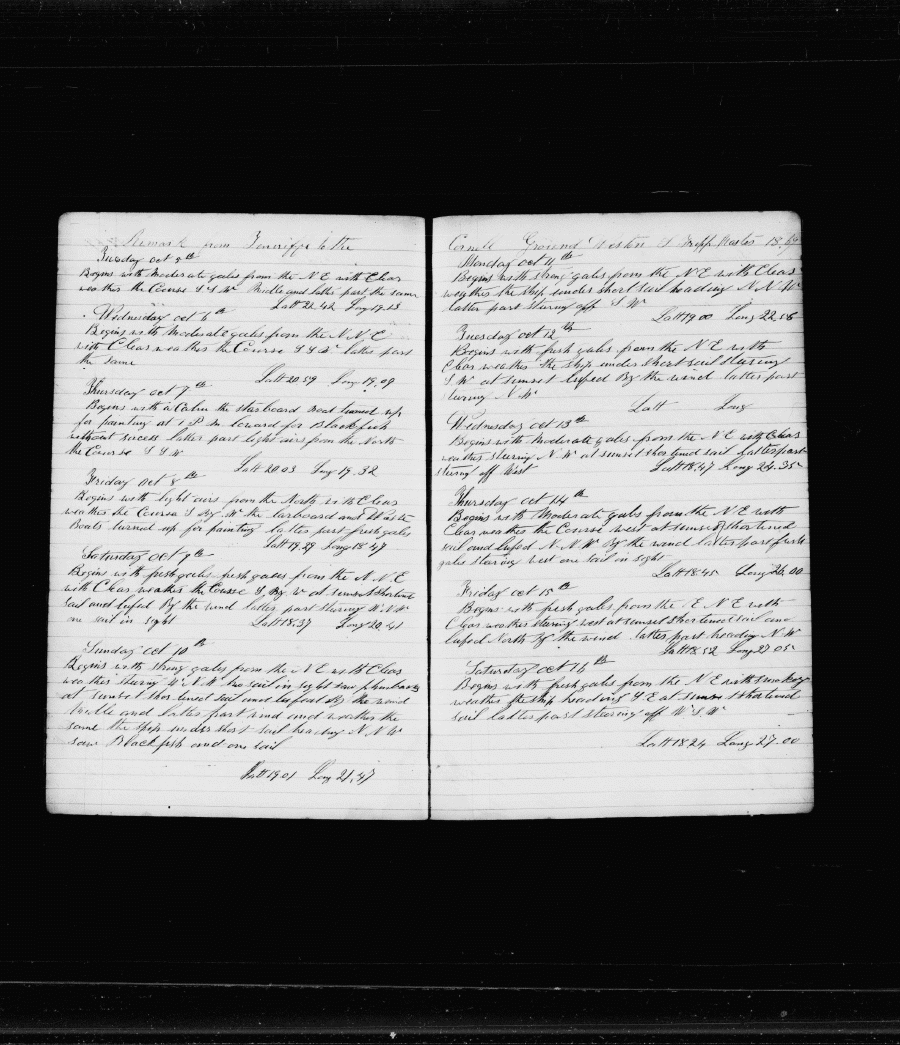 Remark from Teneriffe to the
Tuesday Oct 5th
Begins with Moderate gales from the N E with Clear
weather the Course S S W Midle and latter part the same
Latt 22.42 Long 19.23
Wednesday oct 6th
Begins with Moderate gales from the N N E
with Clear weather the Course S S W latter part
the same
Latt 20 59 Long 19.09
Thursday oct 7th
Begins with a Calm the starboard Boat turned up
for painting at 1 P M lowerd for Blackfish
without sucess latter part light airs from the North
the Course S S W
Latt 20 03 Long 19.32
Friday Oct 8th
Begins with light airs from the North with Clear
weather the Course S By W the larboard and Waste
Boats turned up for painting latter part fresh gales
Latt 19.29 Long 18 47
Saturday Oct 9th
Begins with fresh gales fresh gales from the N N E
with Clear weather the Course S By W at sunset shortend
sail and lufed By the wind latter part stering W N W
one sail in sight Latt 18.37 Long 20.41
Sunday oct 10th
Begins with strong gales from the N E with Clear
weather stering W N W one sail in sight saw
at sunset shortened sail and lufed By the wind
Midle and latter part wind and weather the
same the ship under short sail heading N N W
saw Blackfish and one sail
Latt 19.01 Long 21.47
Ground Weston S Tripp Master 18
Monday Oct 11th
Begins with strong gales from the N E with Clear
weather the ship under short sail heading N N W
latter part stering off S W
Latt 19 00 Long 22.56
Tuesday oct 12th
Begins with fresh gales from the N E with
Clear weather the ship under short sail stering
S W at sunset lufed By the wind latter part
N W
Latt Long
Wednesday oct 13th
Begins with Moderate gales from the N E with Clear
weather stering N W at sunset shortned sail latter part
stering off West Latt 18.47 Long 24.35
Thursday oct 14th
Begins with Moderate gales from the N E with
Clear weather the Course west at sunset shortened
sail and lufed N N W By the wind latter part fresh
gales stering west one sail in sight
Latt 18.45 Long 26.00
Friday oct 15th
Begins with fresh gales from the E N E with
Clear weather stering west at sunset shortened sail and
lufed North By the wind latter part heading N W
Latt 18.52 Long 27 05
Saturday oct 16th
Begins with fresh gales from the N E with smokey
weather the ship heading S E at sunset shortened
sail latter part stearing off W S W
Latt 18 24 Long 27.00